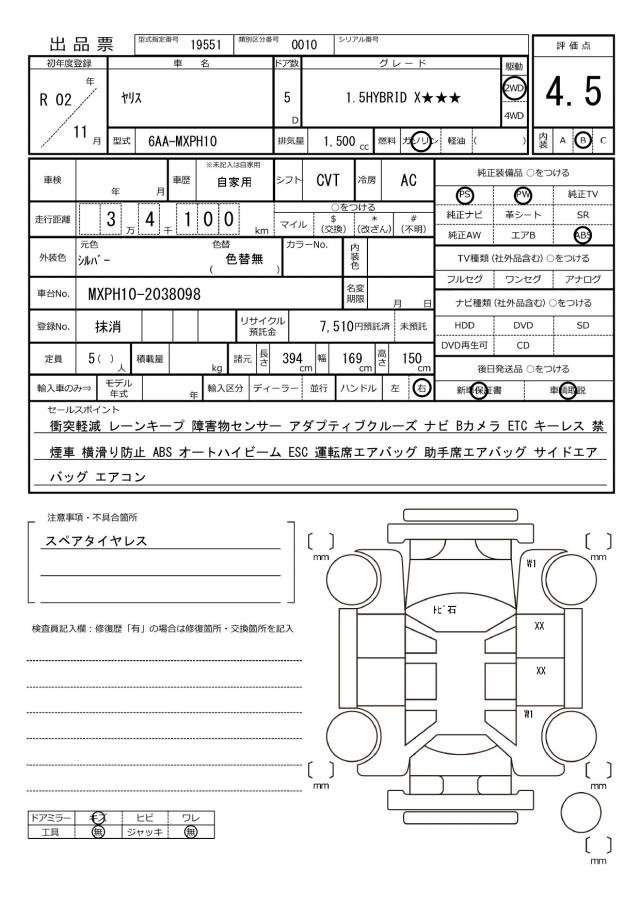 出品票 型式指定番号 19551 類別区分番号 0010 シリアル番号
評価点
4.5
内装 A B C
初年度登録 車名 ドア数 グレード 駆動
R 02 年 11 月
ヤリス 5 D 1.5HYBRID X★★★ 2WD 4WD
型式 6AA-MXPH10 排気量 1,500 cc 燃料 ガソリン 軽油 ( )
車検 年 月 車歴 ※未記入は自家用 自家用 シフト CVT 冷房 AC
走行距離 3 万 4 千 1 0 0 km
○をつける
マイル $ (交換) * (改ざん) # (不明)
外装色 元色 シルバー 色替 ( 色替無 ) カラーNo. 内装色
車台No. MXPH10-2038098 名変期限 月 日
登録No. 抹消 リサイクル預託金 7,510円預託済 未預託
定員 5 ( ) 人 積載量 kg 諸元 長さ 394 cm 幅 169 cm 高さ 150 cm
輸入車のみ⇒ モデル年式 年 輸入区分 ディーラー 並行 ハンドル 左 右
純正装備品 ○をつける
PS PW 純正TV
純正ナビ 革シート SR
純正AW エアB ABS
TV種類 (社外品含む) ○をつける
フルセグ ワンセグ アナログ
ナビ種類 (社外品含む) ○をつける
HDD DVD SD
DVD再生可 CD
後日発送品 ○をつける
新車保証書 車輌取説
セールスポイント
衝突軽減 レーンキープ 障害物センサー アダプティブクルーズ ナビ Bカメラ ETC キーレス 禁
煙車 横滑り防止 ABS オートハイビーム ESC 運転席エアバッグ 助手席エアバッグ サイドエア
バッグ エアコン
注意事項・不具合箇所
スペアタイヤレス
検査員記入欄：修復歴「有」の場合は修復箇所・交換箇所を記入
ドアミラー キズ ヒビ ワレ
工具 無 ジャッキ 無
mm
mm
W1
トビ石
XX
XX
W1
mm
mm
mm